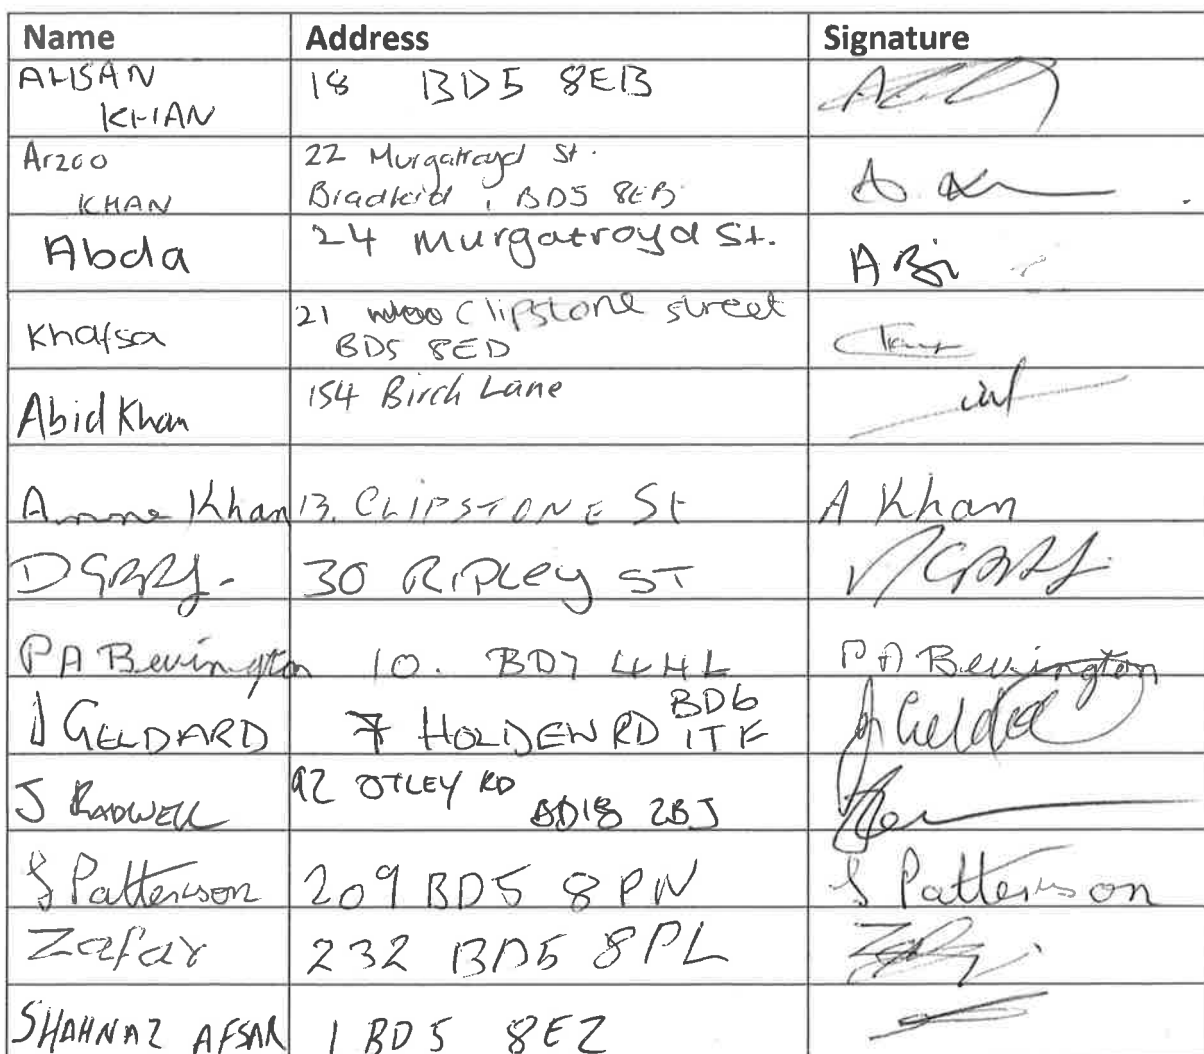 Name Address Signature
AHSAN KHAN 18 BD5 8EB
Arzoo KHAN 22 Murgatroyd St. Bradford, BD5 8EB A. K
Abda 24 Murgatroyd St. A Bi
Khafsa 21 Clipstone street BD5 8ED
Abid Khan 154 Birch Lane
Khan 13. CLIPSTONE St A Khan
D 30 RIPLEY ST
PA Bevington 10. BD7 4HL PA Bevington
J GELDARD 7 HOLDEN RD BD6 1TF J Geldard
J RADWELL 92 OTLEY RD BD18 2BJ
S Patterson 209 BD5 8PN S Patterson
Zafar 232 BD5 8PL
SHAHNAZ AFSAR 1 BD5 8EZ